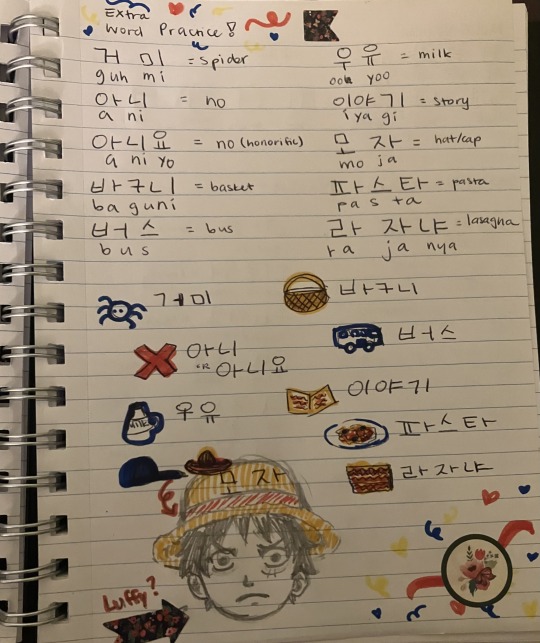 Extra
Word Practice!
거 미 = spider
guh mi
아니 = no
a ni
아니요 = no (honorific)
a ni yo
바구니 = basket
ba guni
버 스 = bus
b u s
우 유 = milk
ooh yoo
이야기 = story
i ya gi
모 자 = hat/cap
mo ja
파 스 타 = pasta
pa s ta
라 자 냐 = lasagna
ra ja nya
거미
바구니
아니
OR 아니요
버스
이야기
MILK
우유
파스타
모 자
라자냐
Luffy?